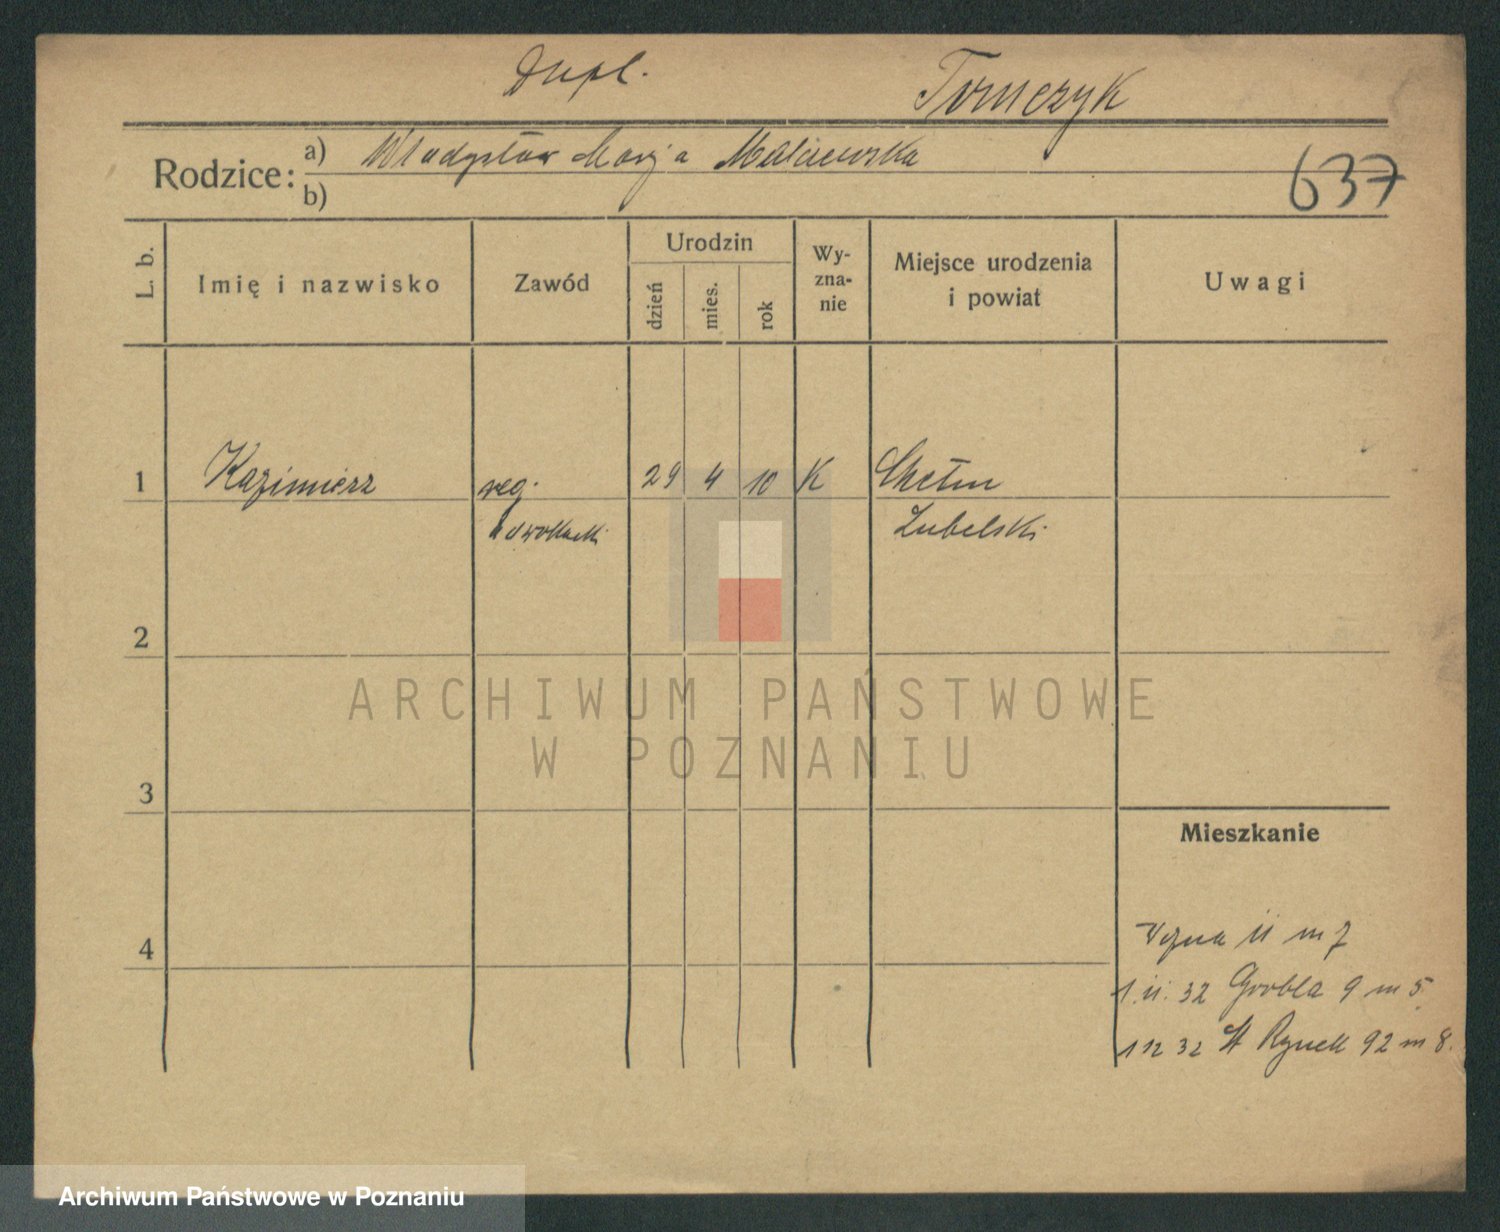 Dupl. Tomczyk
Rodzice: a) Władysław Marja Malicewska
b)
637
L. b. Imię i nazwisko Zawód Urodzin dzień mies. rok Wy-zna-nie Miejsce urodzenia i powiat Uwagi
1 Kazimierz reg. 29 4 10 K Chełm
adwokacki Lubelski
2
ARCHIWUM PAŃSTWOWE
W POZNANIU
3
Mieszkanie
4
11 m 7
1.11.32 Grobla 9 m 5
1 12 32 St Rynek 92 m 8.
Archiwum Państwowe w Poznaniu